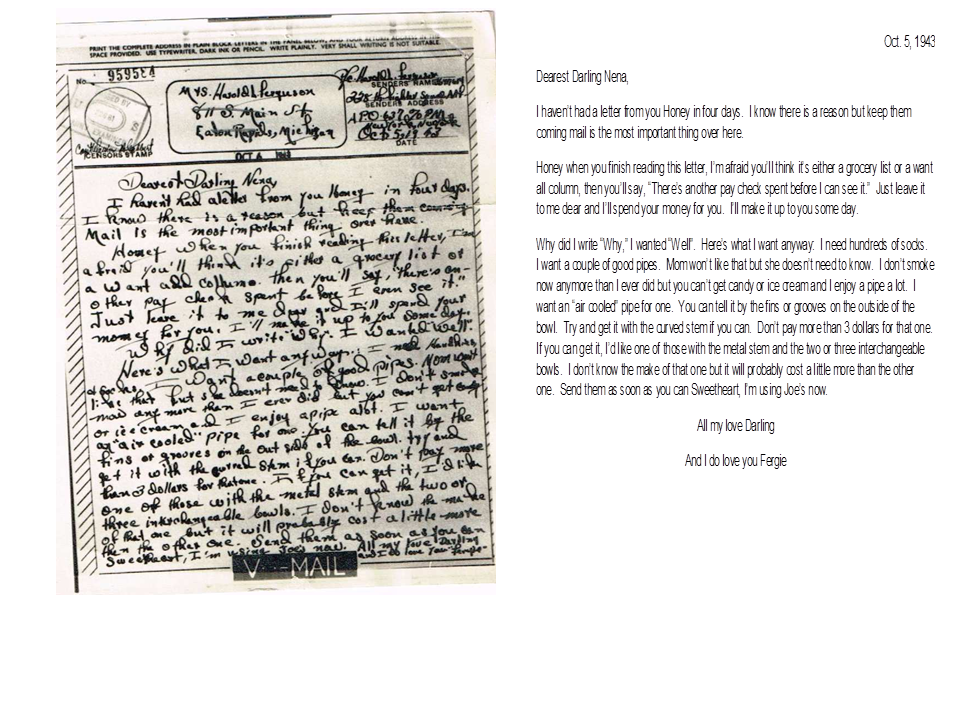 PRINT THE COMPLETE ADDRESS IN PLAIN BLOCK LETTERS IN THE PANEL BELOW, AND YOUR RETURN ADDRESS IN THE
SPACE PROVIDED. USE TYPEWRITER, DARK INK OR PENCIL. WRITE PLAINLY. VERY SMALL WRITING IS NOT SUITABLE.
No.
Mrs. Harold L. Ferguson
811 S. Main St.
Eaton Rapids, Michigan
SENDER'S NAME
SENDERS ADDRESS
Oct 5, 1943
DATE
CENSORS STAMP
OCT 6 1943
Dearest Darling Nena,
I haven't had a letter from you Honey in four days.
I know there is a reason but keep them coming
Mail is the most important thing over here.
Honey when you finish reading this letter, I'm
afraid you'll think it's either a grocery list or
a want add collumn. then you'll say, "there's an-
other pay check spent before I even see it."
Just leave it to me dear and I'll spend your
money for you. I'll make it up to you some day.
Why did I write "Why" I wanted "Well"
Here's what I want anyway. I need hundreds
of socks. I want a couple of good pipes. Mom won't
like that but she doesn't need to know. I don't smoke
now any more than I ever did but you can't get candy
or ice cream and I enjoy a pipe alot. I want
an "air cooled" pipe for one. You can tell it by the
fins or grooves on the out side of the bowl. try and
get it with the curved stem if you can. Don't pay more
than 3 dollars for that one. If you can get it, I'd like
one of those with the metal stem and the two or
three interchangeable bowls. I don't know the make
of that one but it will probably cost a little more
then the other one. Send them as soon as you can
Sweetheart, I'm using Joe's now. All my love Darling
and I do love you Fergie
V - MAIL
Oct. 5, 1943
Dearest Darling Nena,
I haven't had a letter from you Honey in four days. I know there is a reason but keep them
coming mail is the most important thing over here.
Honey when you finish reading this letter, I'm afraid you'll think it's either a grocery list or a want
all column, then you'll say, "There's another pay check spent before I can see it." Just leave it
to me dear and I'll spend your money for you. I'll make it up to you some day.
Why did I write "Why," I wanted "Well". Here's what I want anyway: I need hundreds of socks.
I want a couple of good pipes. Mom won't like that but she doesn't need to know. I don't smoke
now anymore than I ever did but you can't get candy or ice cream and I enjoy a pipe a lot. I
want an "air cooled" pipe for one. You can tell it by the fins or grooves on the outside of the
bowl. Try and get it with the curved stem if you can. Don't pay more than 3 dollars for that one.
If you can get it, I'd like one of those with the metal stem and the two or three interchangeable
bowls. I don't know the make of that one but it will probably cost a little more than the other
one. Send them as soon as you can Sweetheart, I'm using Joe's now.
All my love Darling
And I do love you Fergie